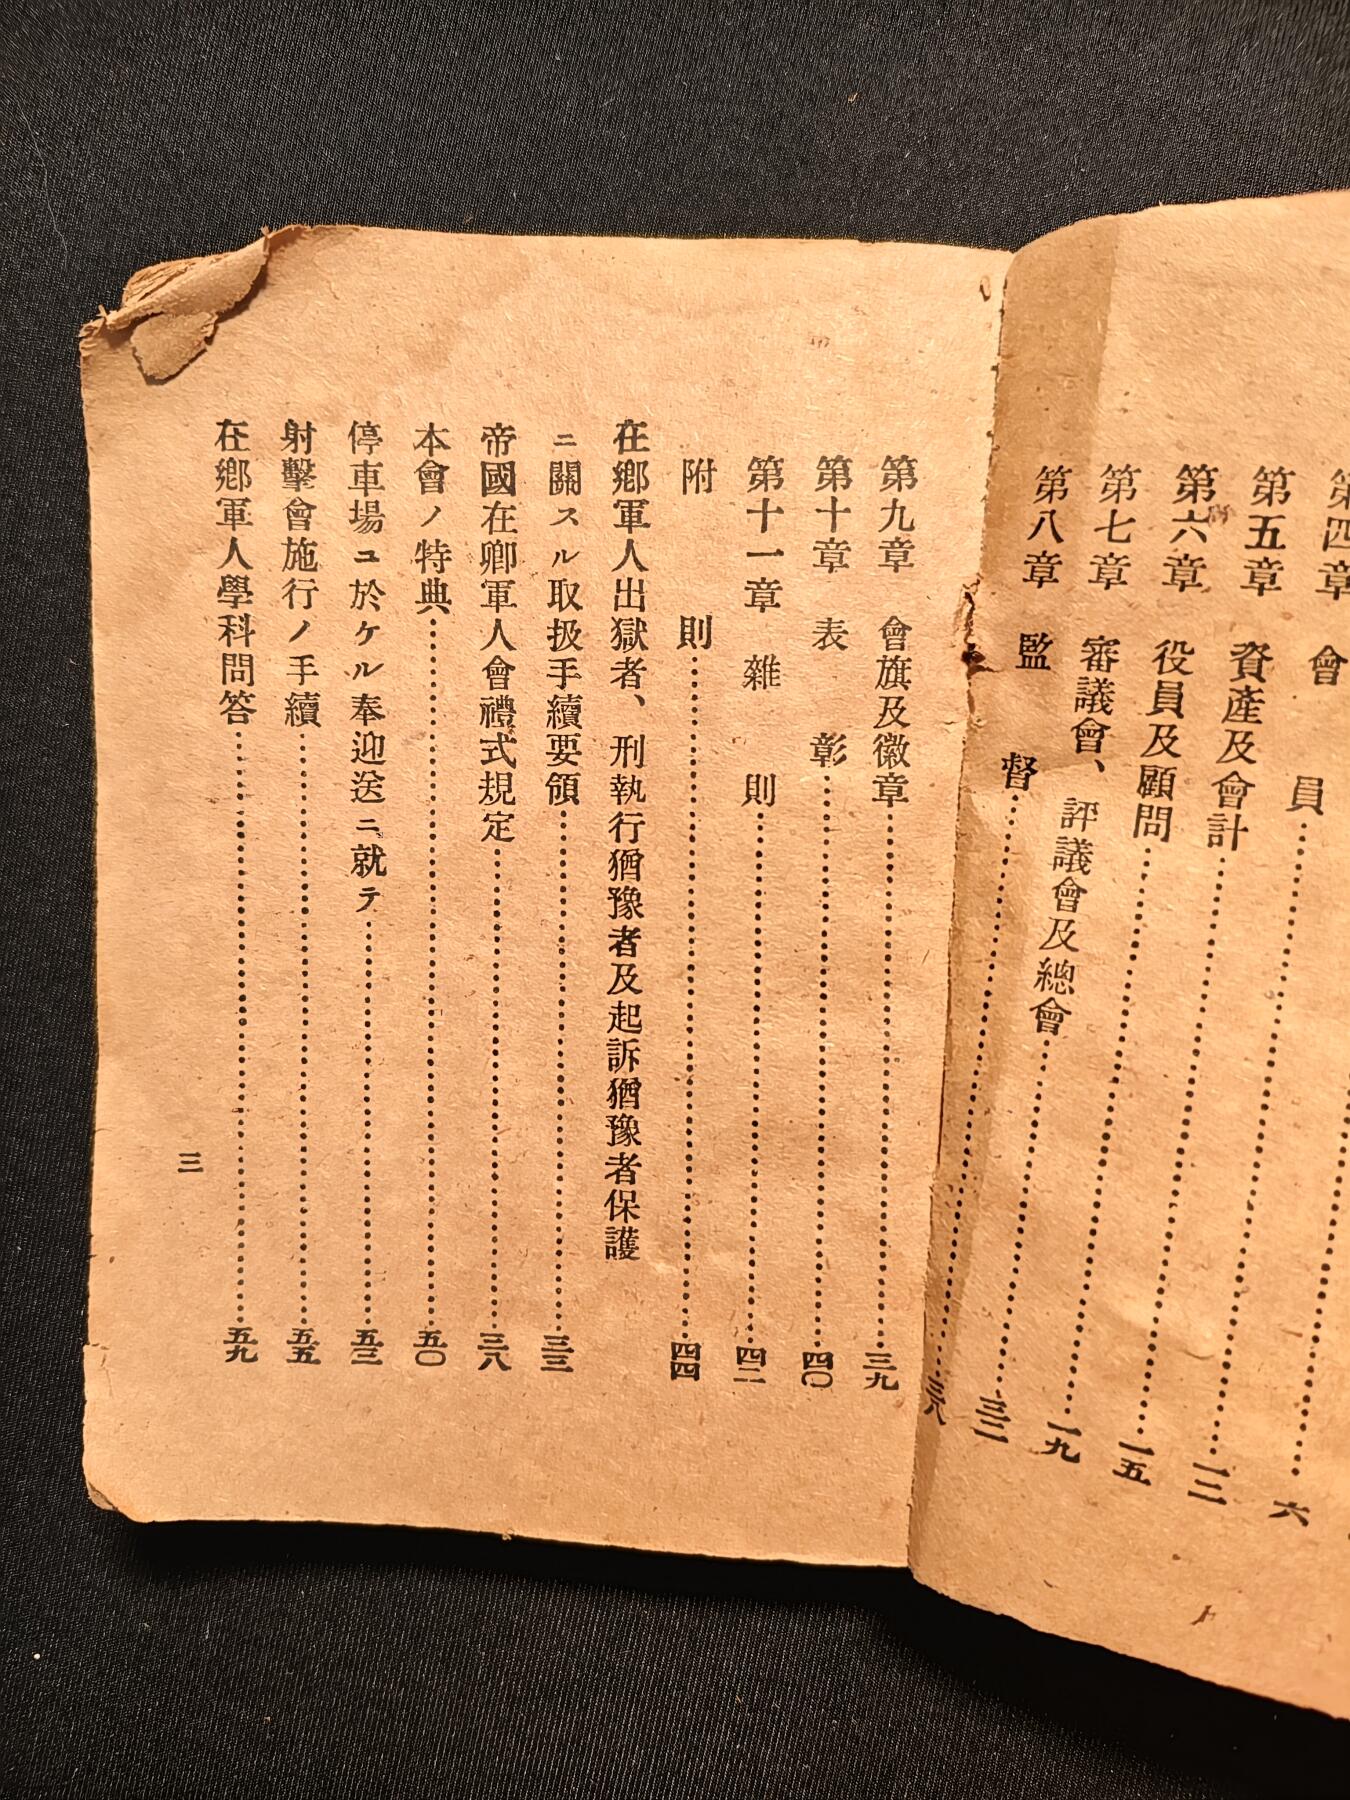 第四章　會　　員………六
第五章　資產及會計………一二
第六章　役員及顧問………一五
第七章　審議會、評議會及總會………一九
第八章　監　　督………三八
第九章　會旗及徽章………三九
第十章　表　　彰………四〇
第十一章　雜　　則………四二
附　　則………四四
在鄕軍人出獄者、刑執行猶豫者及起訴猶豫者保護
ニ關スル取扱手續要領………三三
帝國在鄕軍人會禮式規定………三八
本會ノ特典………五〇
停車場ユ於ケル奉迎送ニ就テ………五三
射擊會施行ノ手續………五五
在鄕軍人學科問答………五九
三